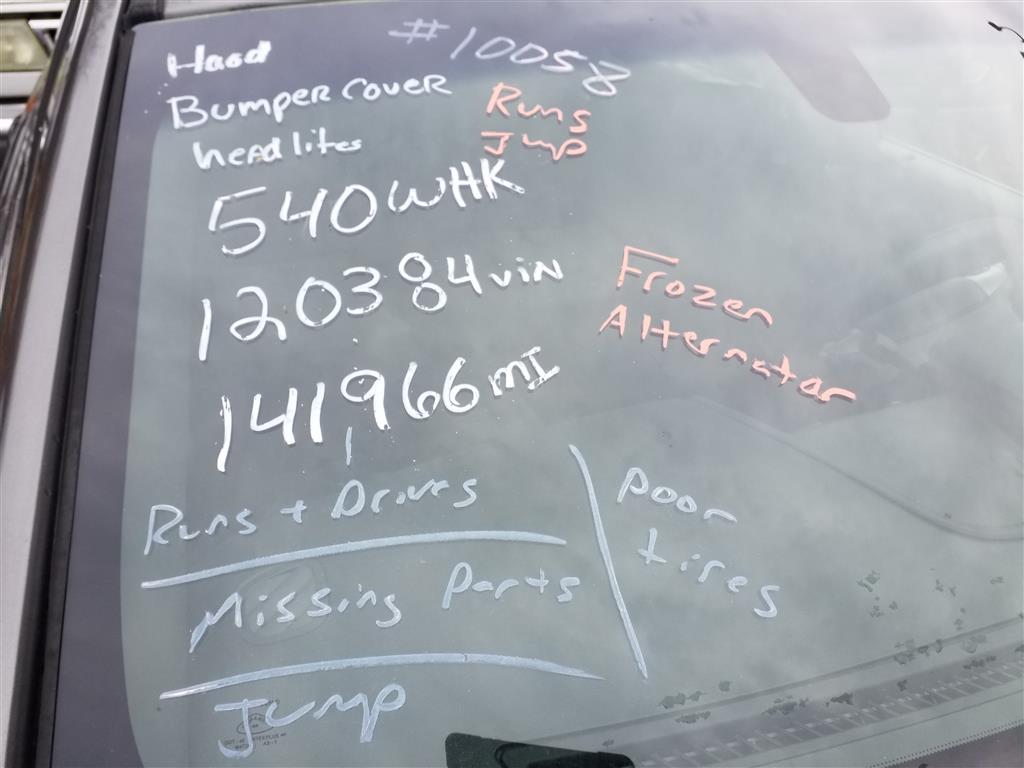 #10058
Hood
Bumper cover
head lites
Runs
Jump
540WHK
120384 VIN
141,966 MI
Frozen
Alternator
Runs + Drives
Missing Parts
Jump
poor
tires